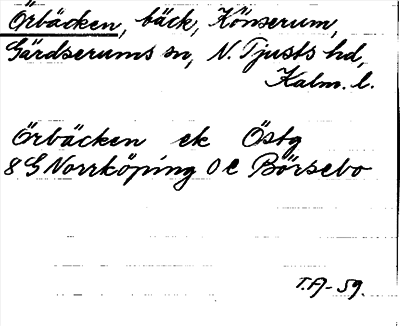 Örbäcken, bäck, Könserum,
Gärdserums sn, N. Tjusts hd,
Kalm. l.
Örbäcken ek Östg
8 G Norrköping 0 e Börsebo
T.A-59.